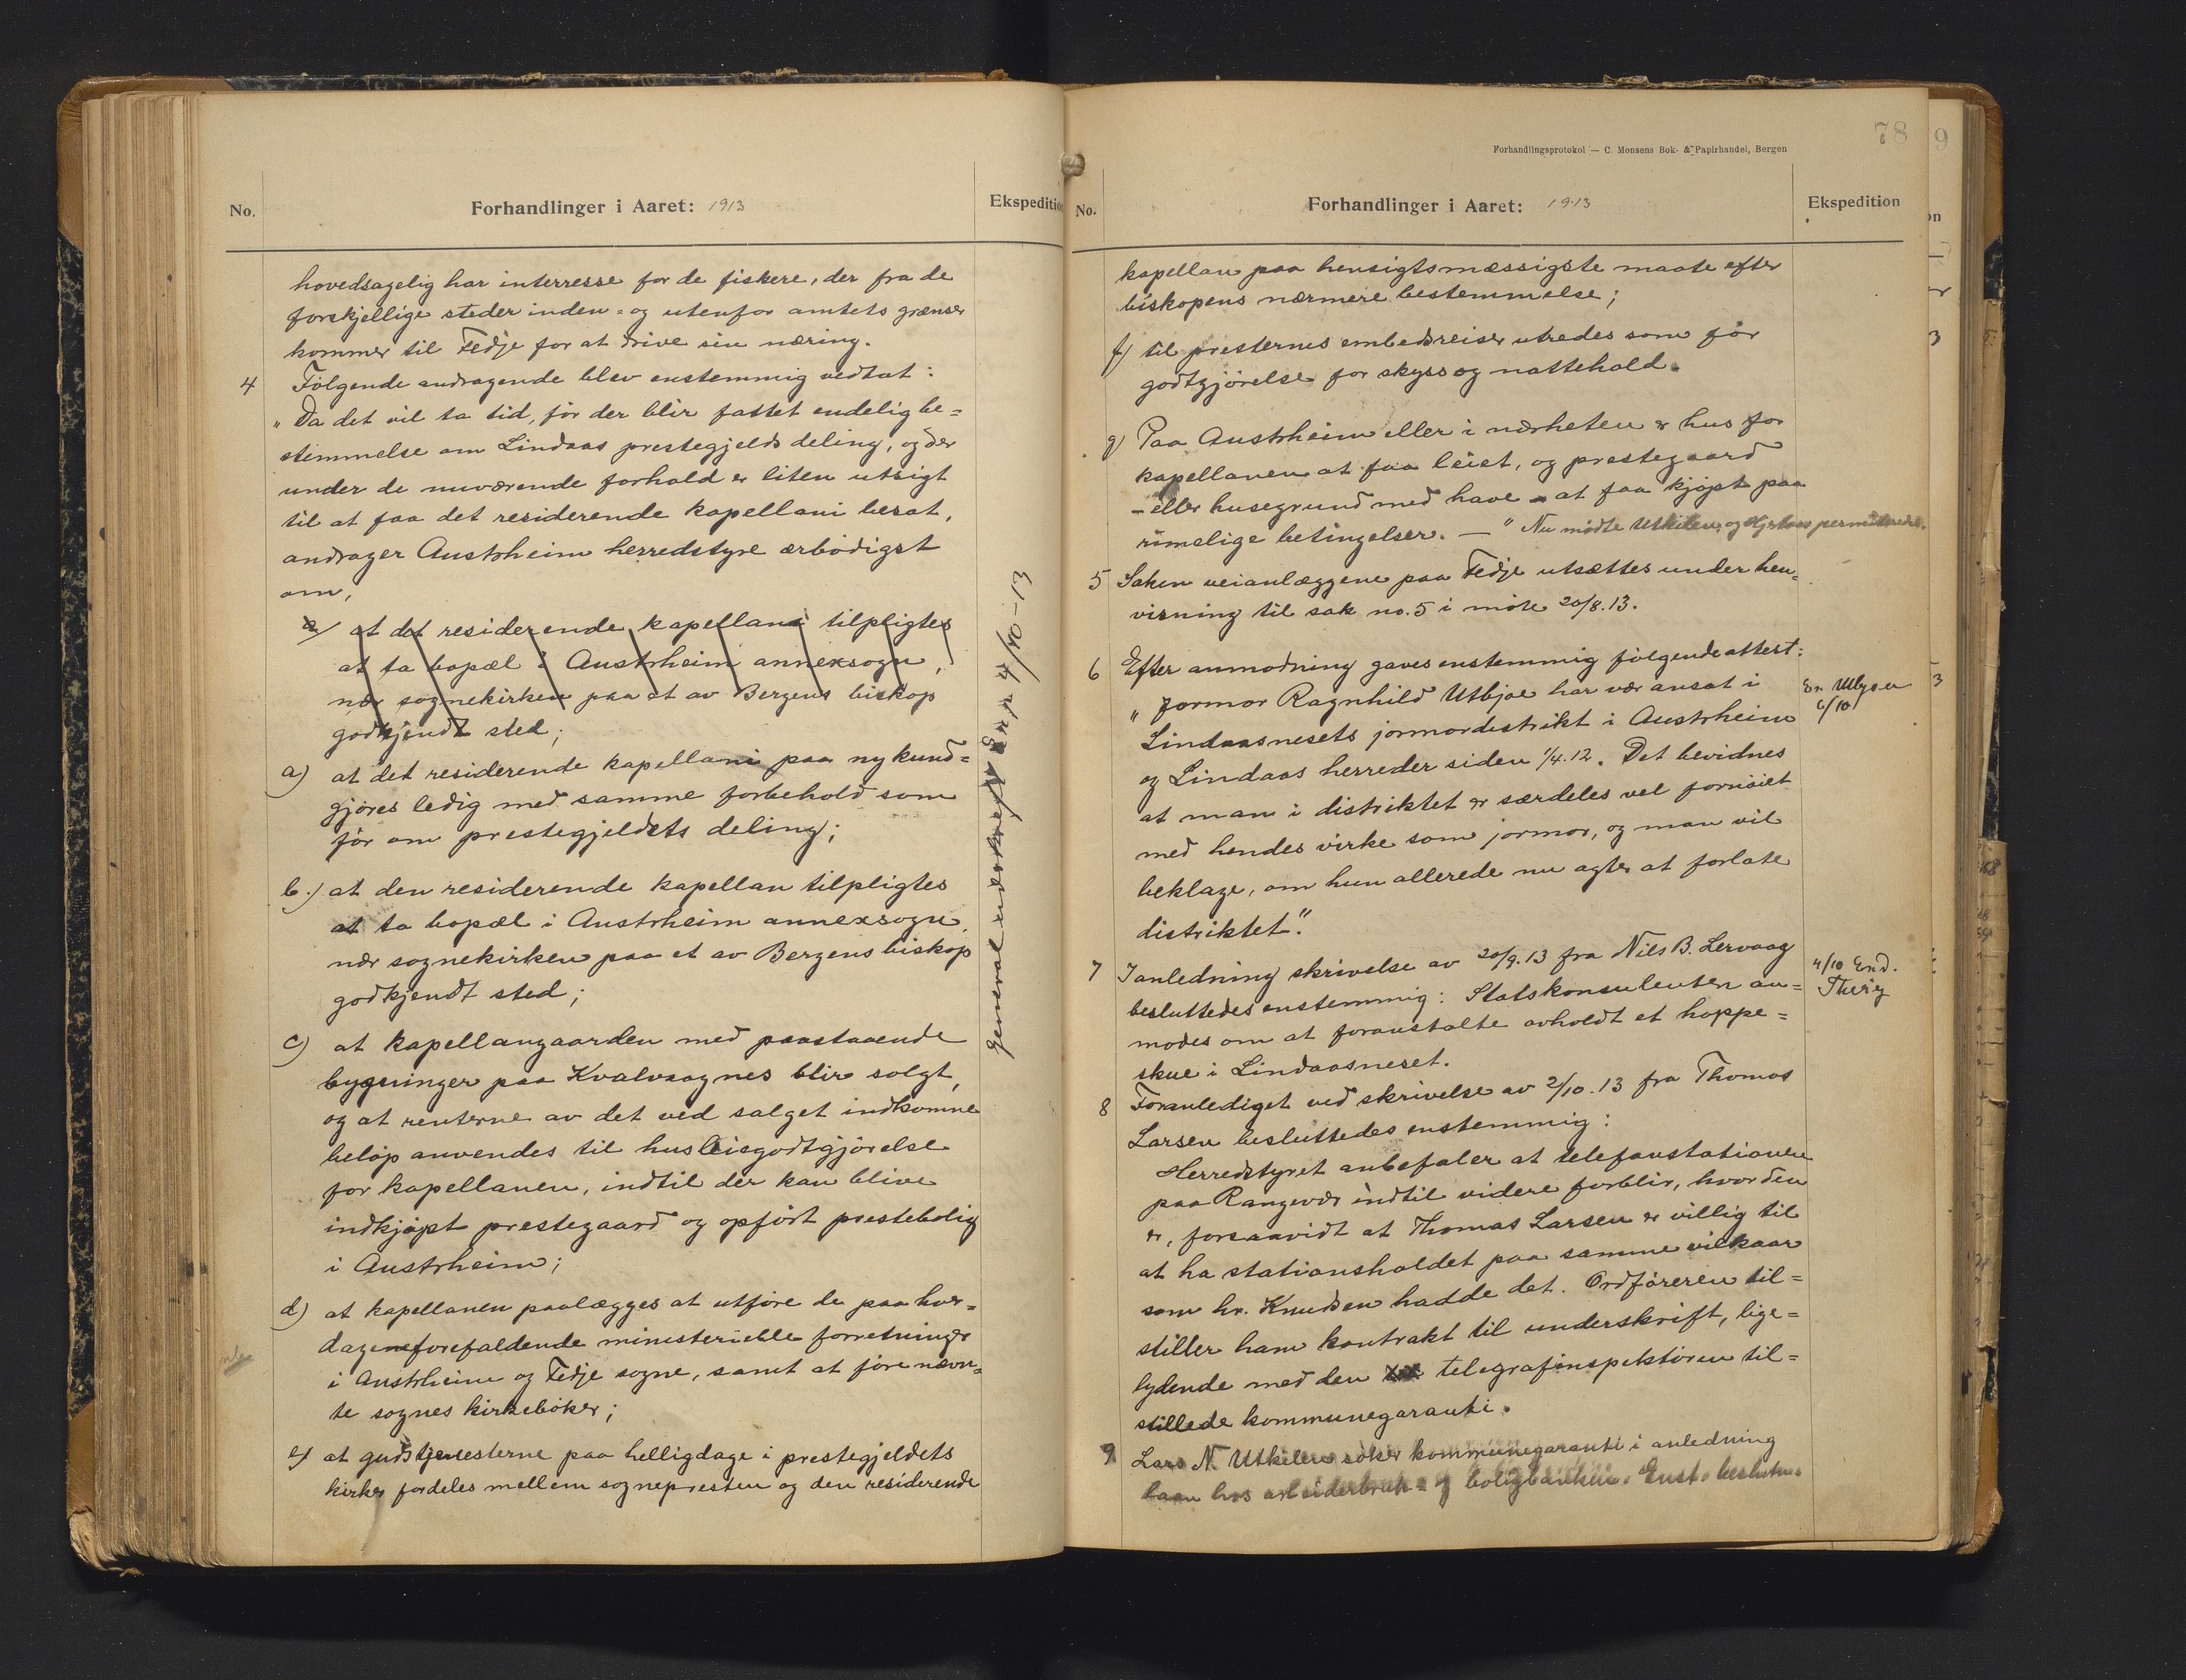 No.
Forhandlinger i Aaret: 1913
Ekspedition
hovedsagelig har interresse for de fiskere, der fra de
forskjellige steder inden- og utenfor amtets grænser
kommer til Fedje for at drive sin næring.
4 Følgende andragende blev enstemmig vedtat:
"Da det vil ta tid, før der blir fattet endelig be=
stemmelse om Lindaas prestegjelds deling, og der
under de nuværende forhold er liten utsigt
til at faa det residerende kapellani besat,
andrager Austrheim herredstyre ærbødigst
om,
a) at det residerende kapellani tilpligtes
at ta bopæl i Austrheim annexsogn,
nær sognekirken paa et av Bergens biskop
godkjendt sted;
a) at det residerende kapellani paa ny kund=
gjøres ledig med samme forbehold som
før om prestegjeldets deling;
b.) at den residerende kapellan tilpligtes
at ta bopæl i Austrheim annexsogn,
nær sognekirken paa et av Bergens biskop
godkjendt sted;
c) at kapellangaarden med paastaaende
bygninger paa Kvalvaagnes blir solgt,
og at renterne av det ved salget indkomne
beløp anvendes til husleiegodtgjørelse
for kapellanen, indtil der kan blive
indkjøpt prestegaard og opført prestebolig
i Austrheim;
d) at kapellanen paalægges at utføre de paa hver=
dagene forefaldende ministerielle forretninger
i Austrheim og Fedje sogne, samt at føre nævn=
te sognes kirkebøker;
e) at gudstjenesterne paa helligdage i prestegjeldets
kirker fordeles mellem sognepresten og den residerende
4/10-13
78
Forhandlingsprotokol — C. Monsens Bok- & Papirhandel, Bergen
No.
Forhandlinger i Aaret: 1913
Ekspedition
kapellan paa hensigtsmæssigste maate efter
biskopens nærmere bestemmelse;
f) til presternes embedsreiser utredes som før
godtgjørelse for skyss og nattehold.
g) Paa Austrheim eller i nærheten er hus for
kapellanen at faa leiet, og prestegaard
- eller husegrund med have - at faa kjøpt paa
rimelige betingelser. — " Nu mødte Utkilen og
5 Saken veianlæggene paa Fedje utsættes under hen=
visning til sak no. 5 i møte 20/8.13.
6 Efter anmodning gaves enstemmig følgende attest:
"Jormor Ragnhild Utbjoe har vær ansat i
Lindaasnesets jormordistrikt i Austrheim
og Lindaas herreder siden 1/4.12. Det bevidnes
at man i distriktet er særdeles vel fornøiet
med hendes virke som jormor, og man vil
beklage, om hun allerede nu agter at forlate
distriktet".
6/10
7 I anledning skrivelse av 20/9.13 fra Nils B. Lervaag
besluttedes enstemmig: Statskonsulenten an=
modes om at foranstalte avholdt et hoppe=
skue i Lindaasneset.
4/10 End.
8 Foranlediget ved skrivelse av 2/10.13 fra Thomas
Larsen besluttedes enstemmig:
Herredstyret anbefaler at telefonstationen
paa Rangevær indtil videre forblir, hvor den
er, forsaavidt at Thomas Larsen er villig til
at ha stationsholdet paa samme vilkaar
som hr. Knudsen hadde det. Ordføreren til=
stiller ham kontrakt til underskrift, lige=
lydende med den telegrafinspektøren til=
stillede kommunegaranti.
9 Lars N. Utkilen søker kommunegaranti i anledning
laan hos arbeiderbruk- og boligbanken. Enst. besluttes